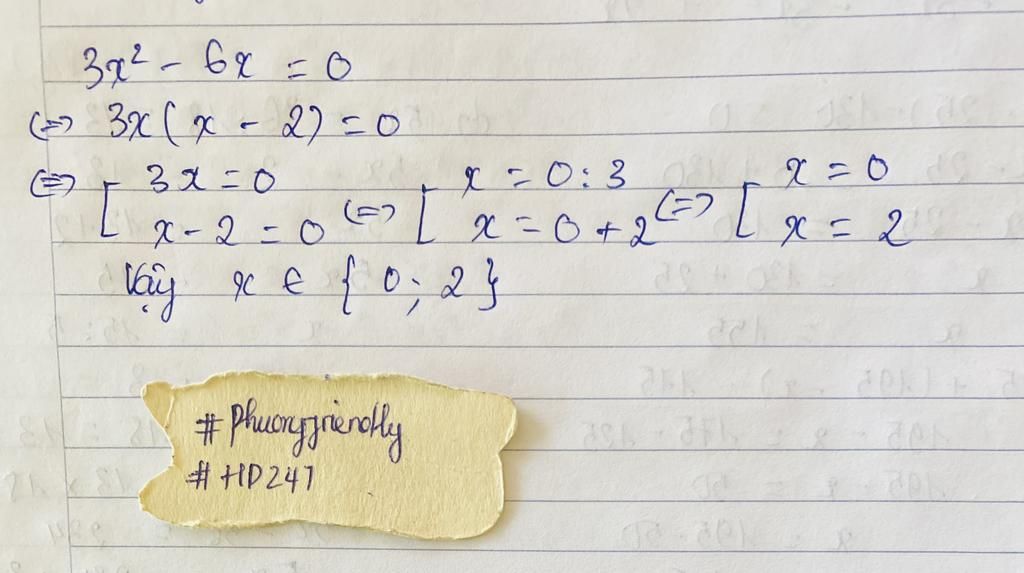 3x² - 6x = 0
<=> 3x(x - 2) = 0
<=> [ 3x = 0 <=> [ x = 0 : 3 <=> [ x = 0
x - 2 = 0 x = 0 + 2 x = 2
Vậy x ∈ {0; 2}
# Phuongfriendly
# HD247